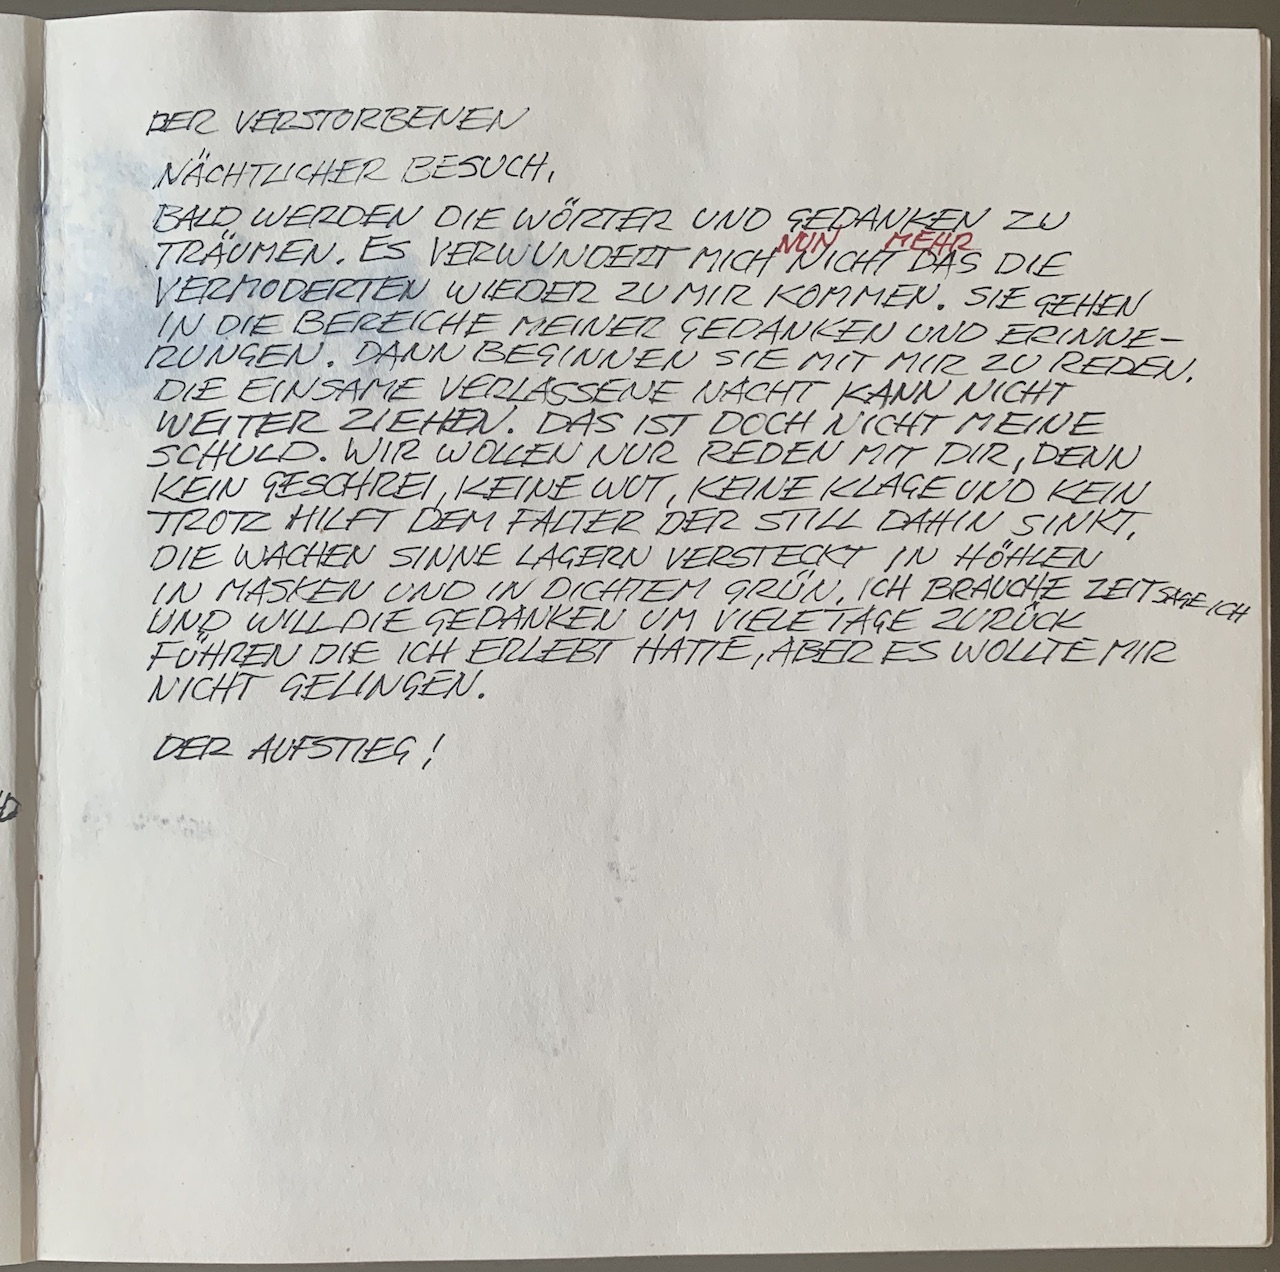 DER VERSTORBENEN
NÄCHTLICHER BESUCH,
BALD WERDEN DIE WÖRTER UND GEDANKEN ZU
NUN MEHR
TRÄUMEN. ES VERWUNDERT MICH NICHT DAS DIE
VERMODERTEN WIEDER ZU MIR KOMMEN. SIE GEHEN
IN DIE BEREICHE MEINER GEDANKEN UND ERINNE-
RUNGEN. DANN BEGINNEN SIE MIT MIR ZU REDEN.
DIE EINSAME VERLASSENE NACHT KANN NICHT
WEITER ZIEHEN. DAS IST DOCH NICHT MEINE
SCHULD. WIR WOLLEN NUR REDEN MIT DIR, DENN
KEIN GESCHREI, KEINE WUT, KEINE KLAGE UND KEIN
TROTZ HILFT DEM FALTER DER STILL DAHIN SINKT.
DIE WACHEN SINNE LAGERN VERSTECKT IN HÖHLEN
IN MASKEN UND IN DICHTEM GRÜN. ICH BRAUCHE ZEIT SAGE ICH
UND WILL DIE GEDANKEN UM VIELE TAGE ZURÜCK
FÜHREN DIE ICH ERLEBT HATTE, ABER ES WOLLTE MIR
NICHT GELINGEN.
DER AUFSTIEG!